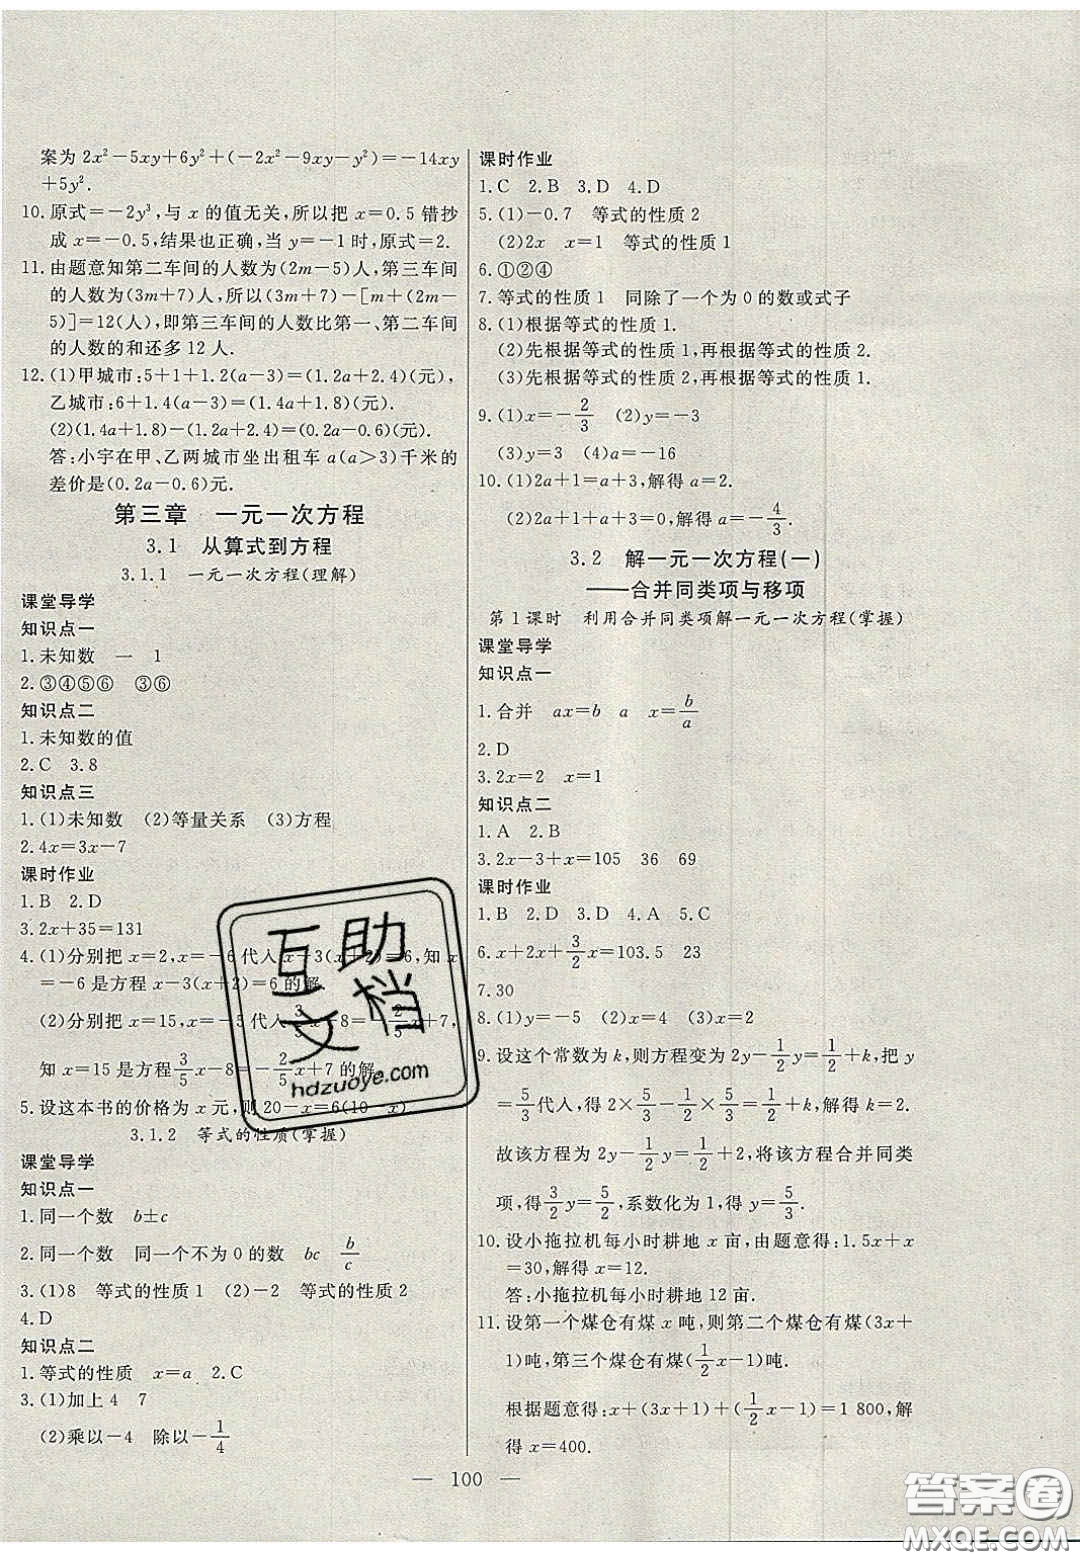 案为 2x²－5xy＋6y²＋(－2x²－9xy－y²)＝－14xy
＋5y².
10. 原式＝－2y³,与 x 的值无关,所以把 x＝0.5 错抄
成 x＝－0.5,结果也正确,当 y＝－1 时,原式＝2.
11. 由题意知第二车间的人数为(2m－5)人,第三车间
的人数为(3m＋7)人,所以(3m＋7)－[m＋(2m－
5)]＝12(人),即第三车间的人数比第一、第二车间
的人数的和还多 12 人.
12. (1)甲城市:5＋1＋1.2(a－3)＝(1.2a＋2.4)(元),
乙城市:6＋1.4(a－3)＝(1.4a＋1.8)(元).
(2)(1.4a＋1.8)－(1.2a＋2.4)＝(0.2a－0.6)(元).
答:小宇在甲、乙两城市坐出租车 a(a＞3)千米的
差价是(0.2a－0.6)元.
第三章　一元一次方程
3.1　从算式到方程
3.1.1　一元一次方程(理解)
课堂导学
知识点一
1. 未知数　一　1
2. ③④⑤⑥　③⑥
知识点二
1. 未知数的值
2. C　3. 8
知识点三
1. (1)未知数　(2)等量关系　(3)方程
2. 4x＝3x－7
课时作业
1. B　2. D
3. 2x＋35＝131
4. (1)分别把 x＝2,x＝－6 代入 x－3(x＋2)＝6,知 x
＝－6 是方程 x－3(x＋2)＝6 的解.
(2)分别把 x＝15,x＝－5 代入 3/5 x－8＝－2/5 x＋7,
知 x＝15 是方程 3/5 x－8＝－2/5 x＋7 的解.
5. 设这本书的价格为 x 元,则 20－x＝6(10－x).
3.1.2　等式的性质(掌握)
课堂导学
知识点一
1. 同一个数　b±c
2. 同一个数　同一个不为 0 的数　bc　b/c
3. (1)8　等式的性质 1　(2)－2　等式的性质 2
4. D
知识点二
1. 等式的性质　x＝a　2. C
3. (1)加上 4　7
(2)乘以－4　除以－1/4
课时作业
1. C　2. B　3. D　4. D
5. (1)－0.7　等式的性质 2
(2)2x　x＝1　等式的性质 1
6. ①②④
7. 等式的性质 1　同除了一个为 0 的数或式子
8. (1)根据等式的性质 1.
(2)先根据等式的性质 1,再根据等式的性质 2.
(3)先根据等式的性质 2,再根据等式的性质 1.
9. (1)x＝－2/3　(2)y＝－3
(3)y＝3　(4)a＝－16
10. (1)2a＋1＝a＋3,解得 a＝2.
(2)2a＋1＋a＋3＝0,解得 a＝－4/3.
3.2　解一元一次方程(一)
——合并同类项与移项
第 1 课时　利用合并同类项解一元一次方程(掌握)
课堂导学
知识点一
1. 合并　ax＝b　a　x＝b/a
2. D
3. 2x＝2　x＝1
知识点二
1. A　2. B
3. 2x－3＋x＝105　36　69
课时作业
1. B　2. D　3. D　4. A　5. C
6. x＋2x＋3/2 x＝103.5　23
7. 30
8. (1)y＝－5　(2)x＝4　(3)x＝2
9. 设这个常数为 k,则方程变为 2y－1/2 y＝1/2＋k,把 y
＝5/3 代入,得 2×5/3－1/2×5/3＝1/2＋k,解得 k＝2.
故该方程为 2y－1/2 y＝1/2＋2,将该方程合并同类
项,得 3/2 y＝5/2,系数化为 1,得 y＝5/3.
10. 设小拖拉机每小时耕地 x 亩,由题意得:1.5x＋x
＝30,解得 x＝12.
答:小拖拉机每小时耕地 12 亩.
11. 设第一个煤仓有煤 x 吨,则第二个煤仓有煤(3x＋
1)吨,第三个煤仓有煤(1/2 x－1)吨.
根据题意得:x＋(3x＋1)＋(1/2 x－1)＝1 800,解
得 x＝400.
— 100 —
互助
文档
hdzuoye.com
答案卷
MXQE.COM